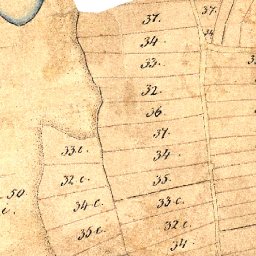 37.
37.
34
34
33.
32.
36.
37.
33.c.
34.
32.c.
35.
50.
34.c
33.c
i.
35.c
32.c.
34